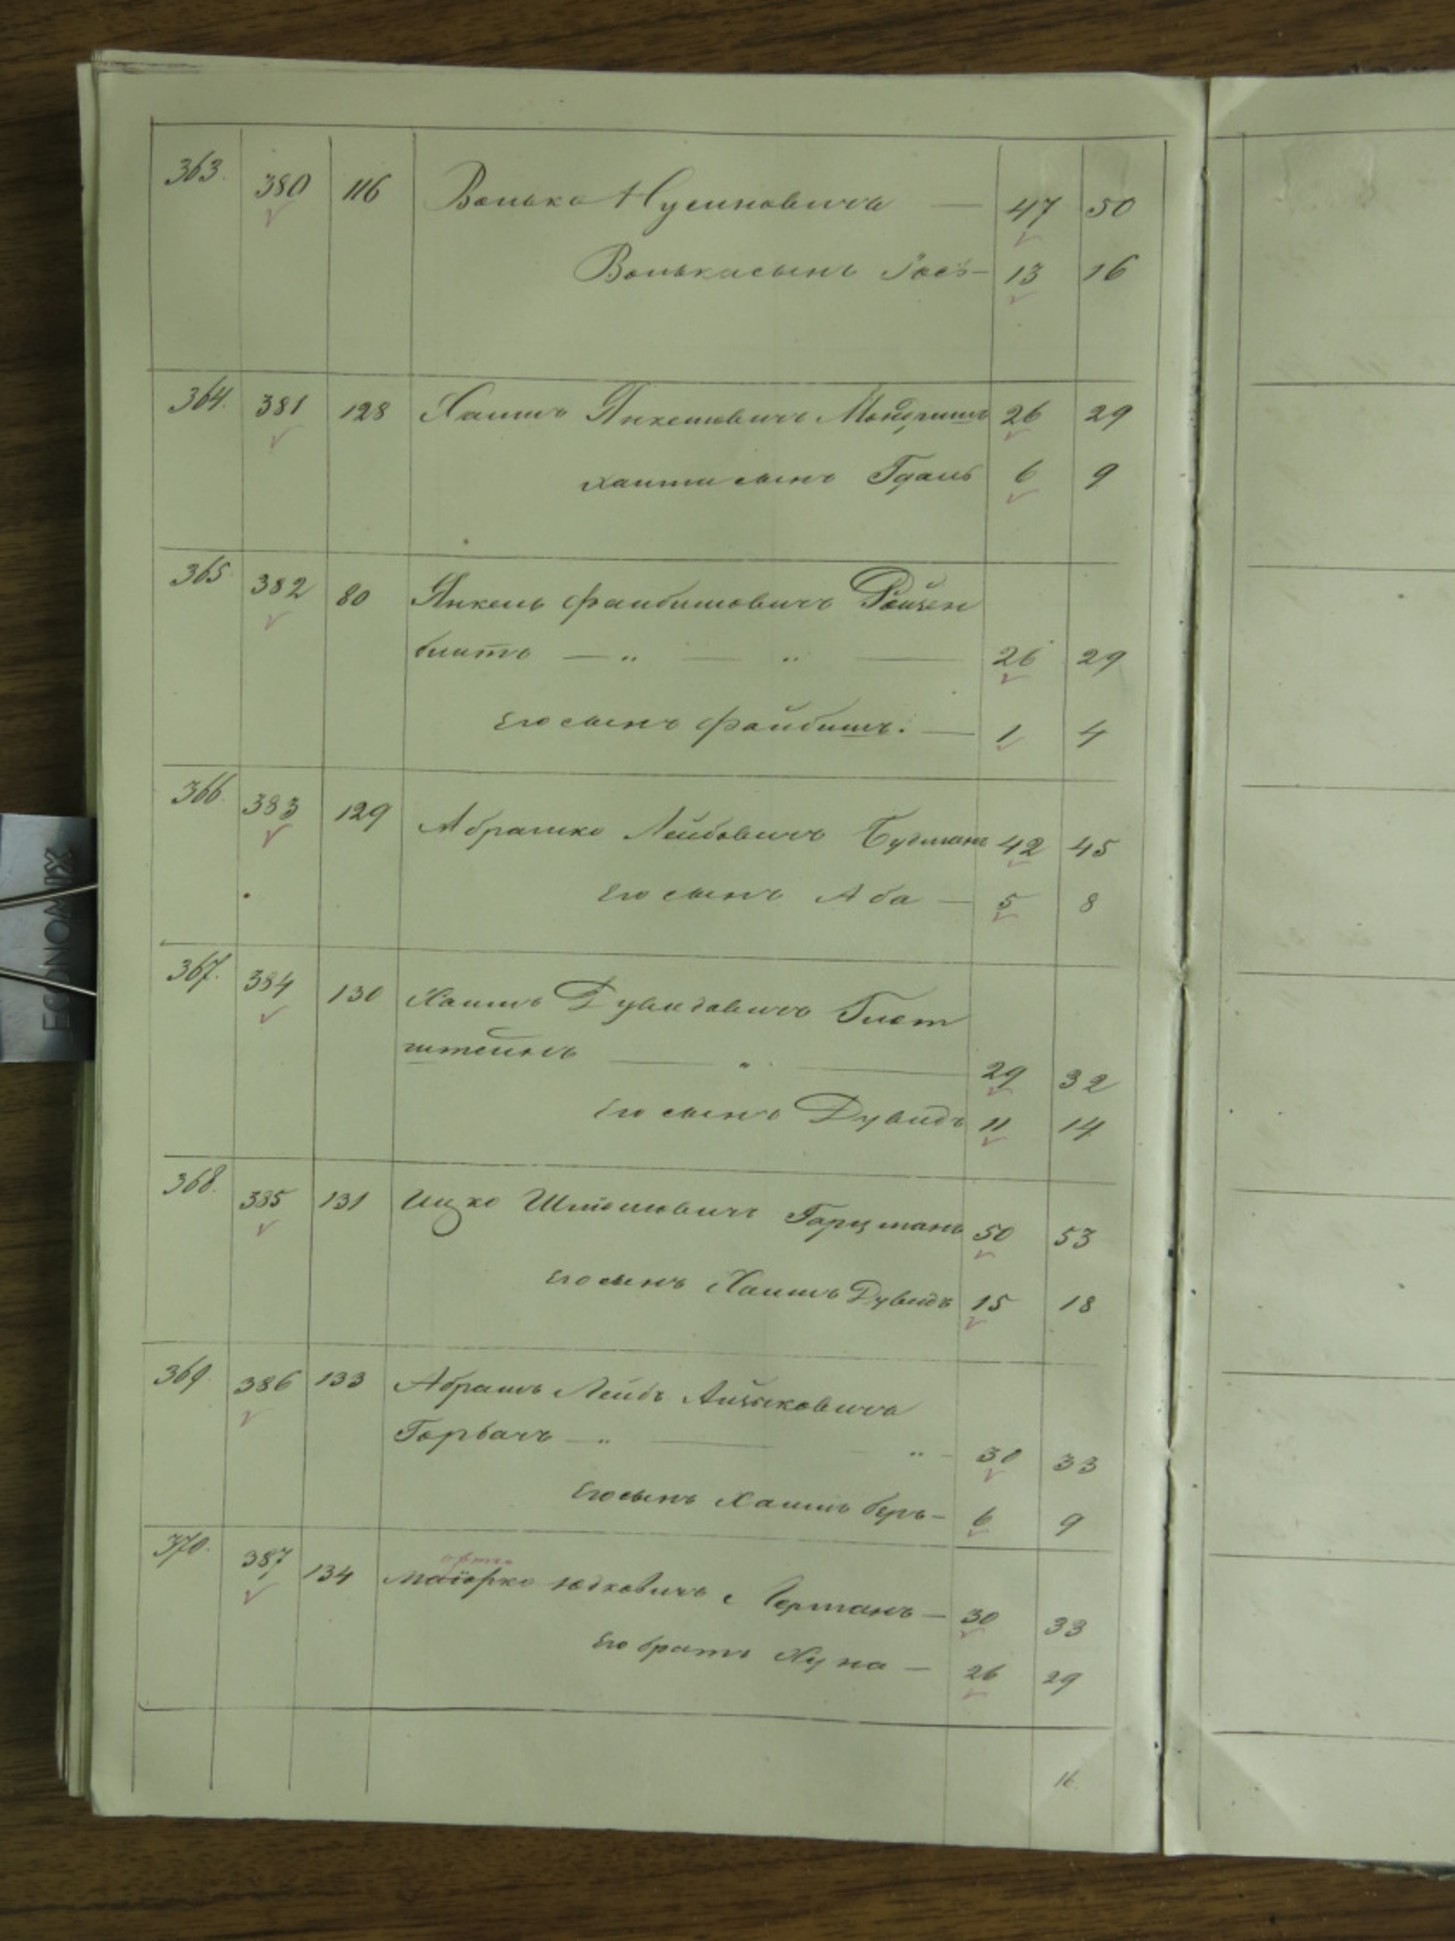 363. 380 116 Волько Нусиновичъ — 47 50
Волькасынъ Іосъ — 13 16
364. 381 128 Хаимъ Янкелювичъ 26 29
Хаима сынъ Гдаль 6 9
365. 382 80 Янкель Файбишовичъ Ройзен
блитъ — „ — „ — 26 29
Его сынъ Файбишъ. — 1 4
366. 383 129 Абрамко Лейбовичъ Гудманъ 42 45
Его сынъ Аба — 5 8
367. 384 130 Хаимъ Дувидовичъ
штейнъ — „ — 29 32
Его сынъ Дувидъ 11 14
368. 385 131 Ицко Шліомовичъ Гарцманъ 50 53
Его сынъ Хаимъ Дувидъ 15 18
369. 386 133 Абрамъ Лейбъ Айзиковичъ
Горбачъ — „ — „ — 30 33
Его сынъ Хаимъ Беръ — 6 9
370. 387 134 Маіорко Юдковичъ Лерманъ — 30 33
Его братъ Нуна — 26 29
16.
ECONOMIX